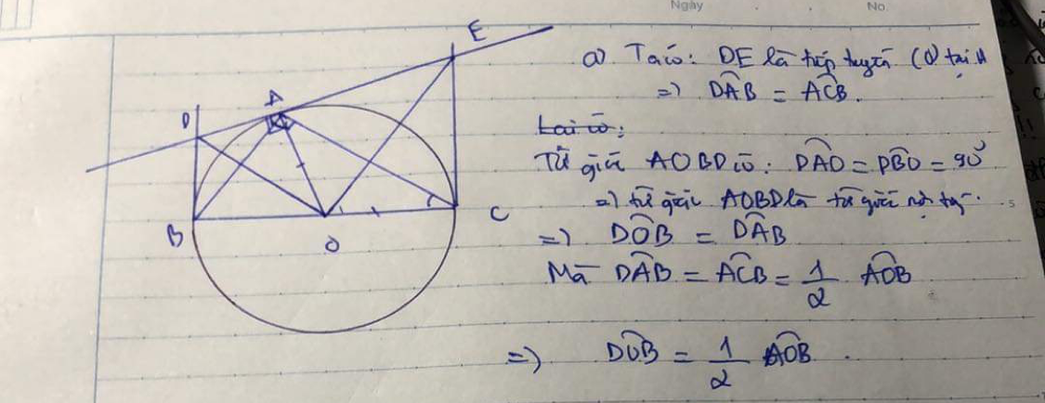 Ngày
No.
E
A
D
B
O
C
a) Ta có: DE là tiếp tuyến (O) tại A
=> DAB = ACB.
Lại có:
Tứ giác AOBD có: DAO = DBO = 90°
=> tứ giác AOBD là tứ giác nội tiếp.
=> DOB = DAB
Mà DAB = ACB = 1/2 AOB
=> DOB = 1/2 AOB.